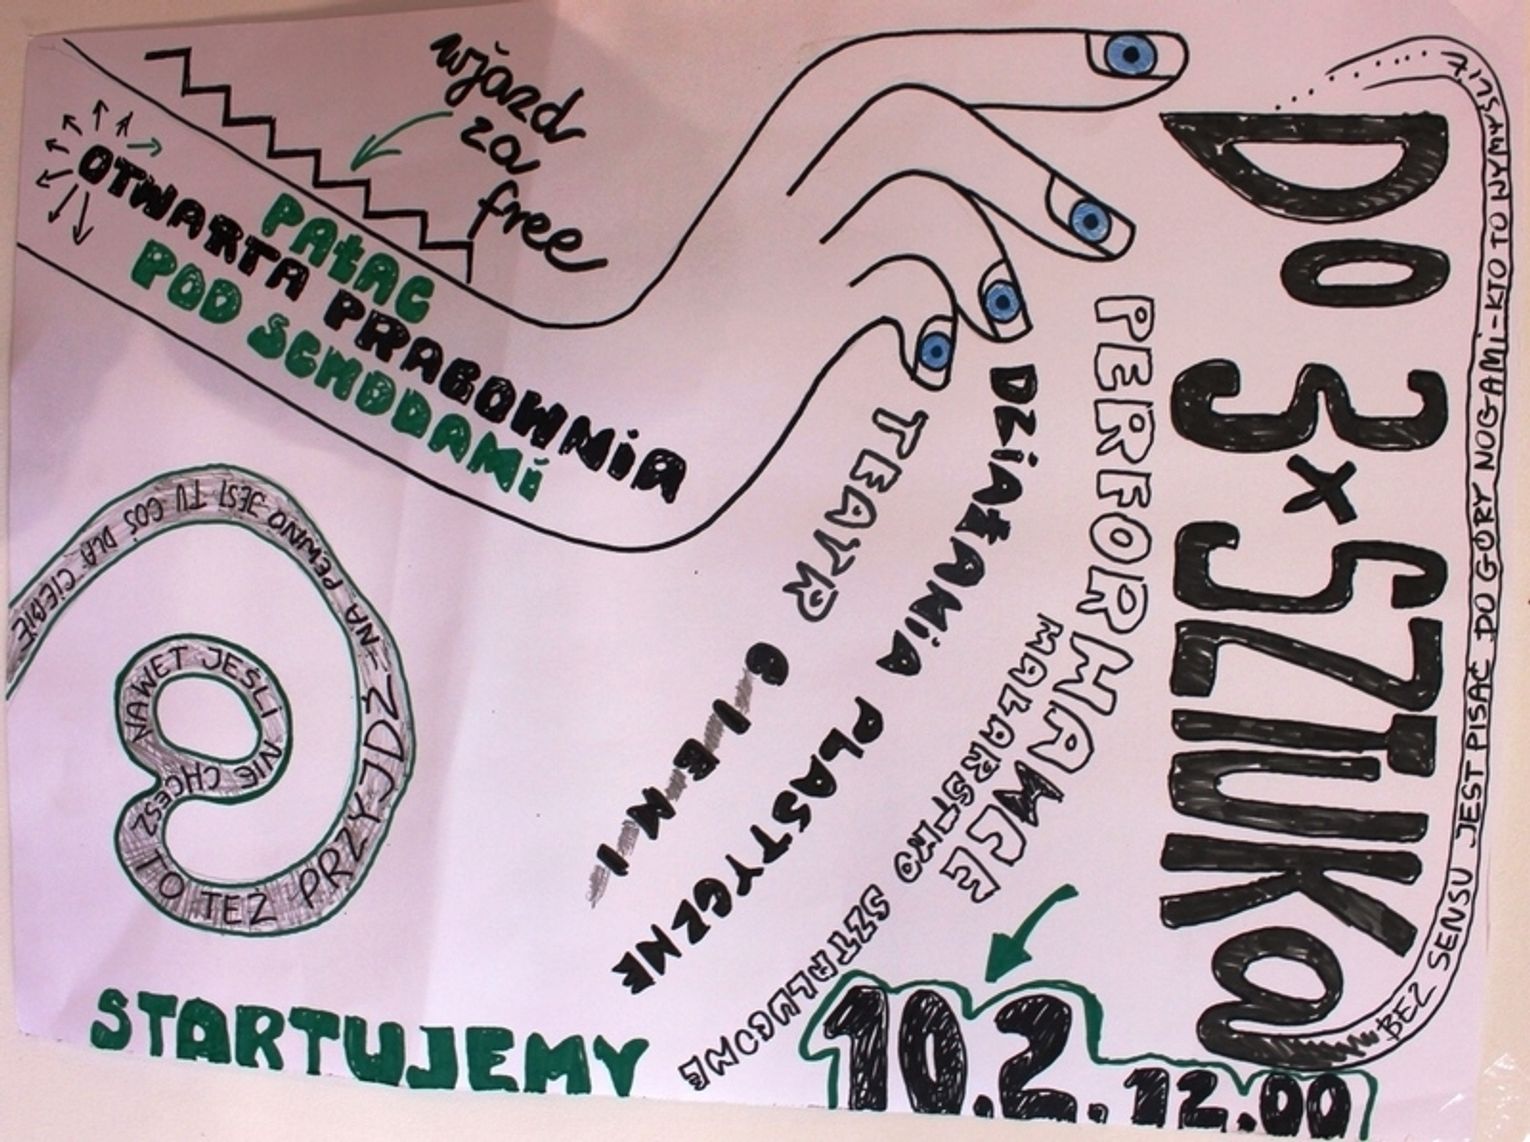 wjazd
za
free
PAŁAC
OTWARTA PRACOWNIA
POD SCHODAMI
Do 3x SZTUKa
BEZ SENSU JEST PISAĆ DO GÓRY NOGAMI - KTO TO WYMYŚLIŁ
PERFORMANCE
MALARSTWO SZTALUGOWE
DZIAŁANIA PLASTYCZNE
TEATR CIENI
NAWET JEŚLI NIE CHCESZ TO TEŻ PRZYJDŹ - NA PEWNO JEST TU COŚ DLA CIEBIE
STARTUJEMY
10.2. 12.00